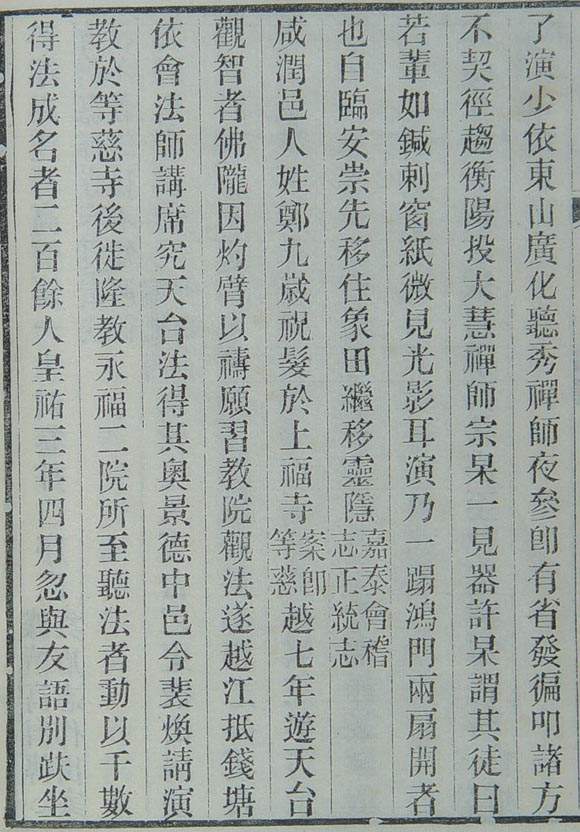 了演少依東山廣化聽秀禪師夜參卽有省發徧叩諸方
不契徑趨衡陽投大慧禪師宗杲一見器許杲謂其徒曰
若輩如鍼刺窗紙微見光影耳演乃一蹋鴻門兩扇開者
也自臨安崇先移住象田繼移靈隱嘉泰會稽志正統志
咸潤邑人姓鄭九歲祝髮於上福寺案卽等慈越七年遊天台
觀智者佛隴因灼臂以禱願習教院觀法遂越江抵錢塘
依會法師講席究天台法得其奧景德中邑令裴煥請演
教於等慈寺後徙隆教永福二院所至聽法者動以千數
得法成名者二百餘人皇祐三年四月忽與友語別趺坐